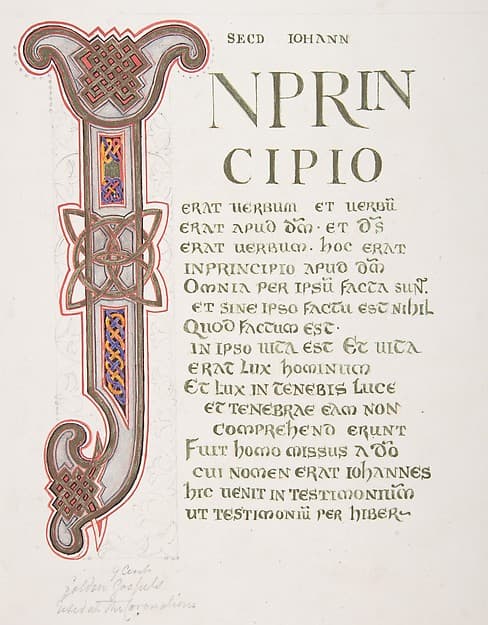 SECD IOHANN
INPRIN
CIPIO
ERAT UERBUM ET UERBŪ
ERAT APUD DM̄ · ET D̄S
ERAT UERBUM · HOC ERAT
INPRINCIPIO APUD DM̄
OMNIA PER IPSŪ FACTA SUN̄T
ET SINE IPSO FACTŪ EST NIHIL
QUOD FACTUM EST ·
IN IPSO UITA EST ET UITA
ERAT LUX HOMINUM
ET LUX IN TENEBIS LUCE
ET TENEBRAE EAM NON
COMPREHEND ERUNT
FUIT HOMO MISSUS A DŌ
CUI NOMEN ERAT IOHANNES
HIC UENIT IN TESTIMONIUM̄
UT TESTIMONIŪ PER HIBER
9 Cent
Golden Gospels
Used at the Coronations